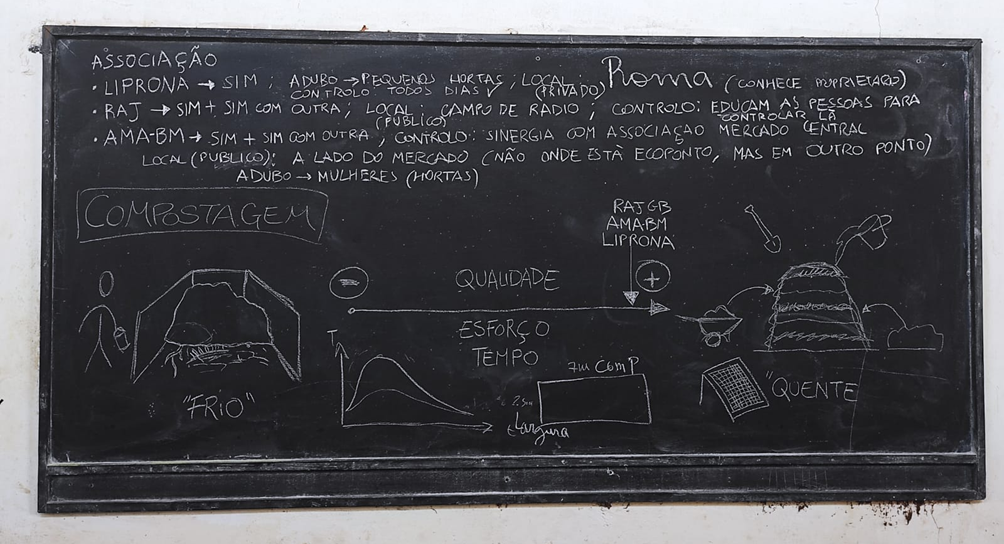 ASSOCIAÇÃO
• LIPRONA → SIM ; ADUBO → PEQUENOS HORTAS ; LOCAL: Roma (CONHECE PROPRIETARIO)
CONTROLO: TODOS DIAS (PRIVADO)
• RAJ → SIM + SIM COM OUTRA ; LOCAL: CAMPO DE RADIO ; CONTROLO: EDUCAM AS PESSOAS PARA
(PUBLICO) CONTROLAR LÁ
• AMA-BM → SIM + SIM COM OUTRA ; CONTROLO: SINERGIA COM ASSOCIAÇÃO MERCADO CENTRAL
LOCAL (PUBLICO): A LADO DO MERCADO (NÃO ONDE ESTÀ ECOPONTO, MAS EM OUTRO PONTO)
ADUBO → MULHERES (HORTAS)
COMPOSTAGEM
RAJ GB
AMABM
LIPRONA
- QUALIDADE +
ESFORÇO
TEMPO
T
7m ComP
2,5m
Largura
"FRIO"
"QUENTE